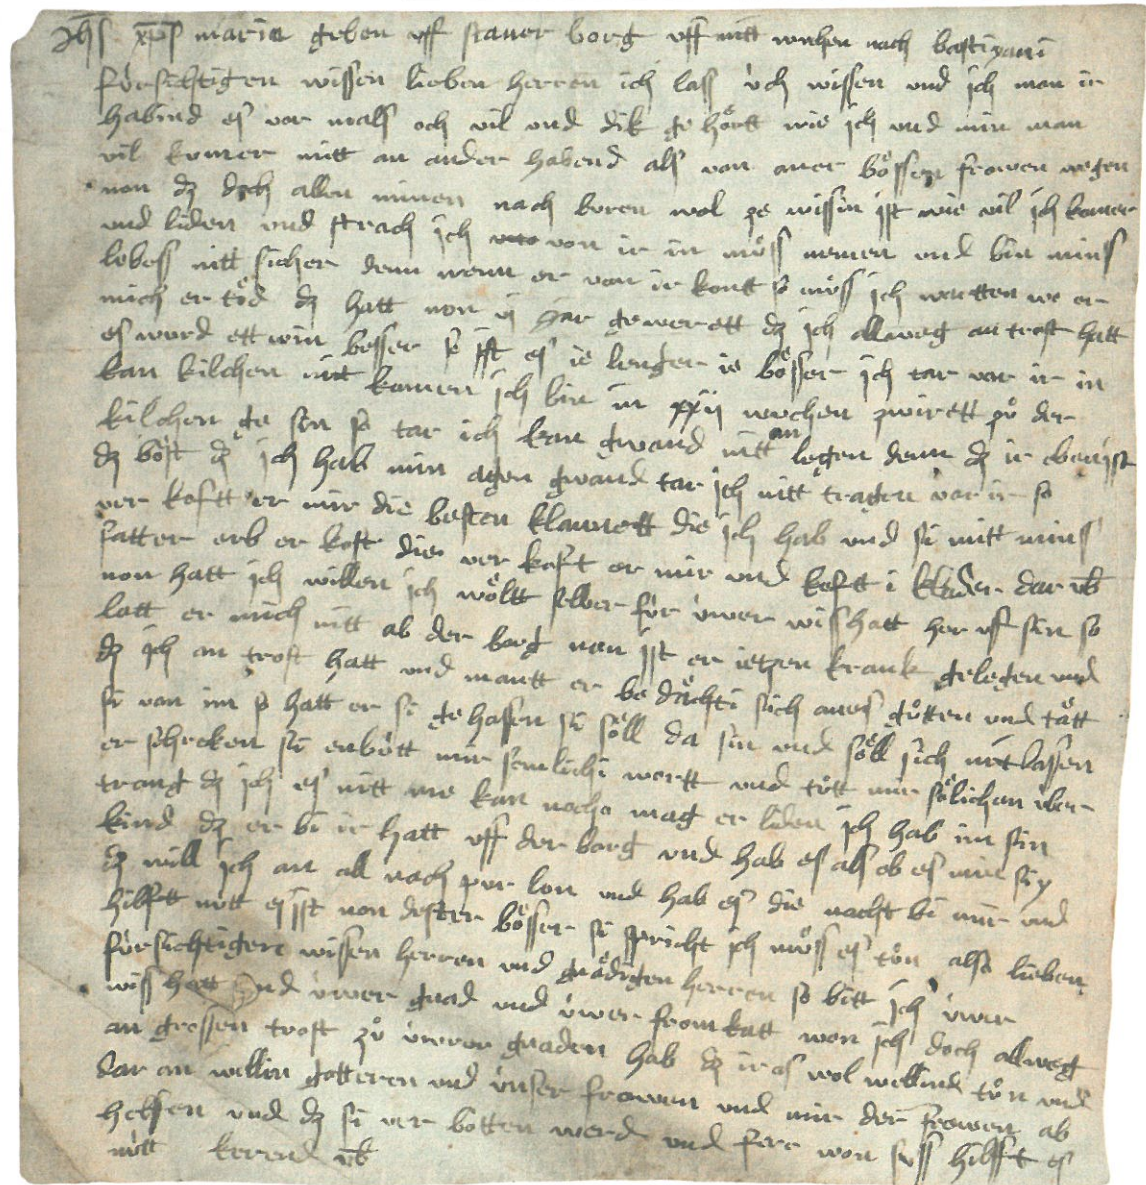 Jhs xps maria geben uff stauer borg uff mitt wuchen nach bastiyani
fürsichtigen wissen lieben herren ich lass üch wissen und ich man ir
habind es vor mals och vil und dik ge hörtt wie ich und min man
vil komer mitt an ander habend als von aner bössen frowen wegen
non dz doch allen minen nach buren wol ze wissin ist wie vil ich komer
und liden und strach ich von ir in möss nemen und bin mins
lebess nitt sicher denn wenn er von ir kontt so möss ich wartten we er
mich er töd dz hatt non ij jar gewerett dz ich allweg an trost hatt
es wurd ett win besser so ist es ie lenger ie bösser ich tar vor ir in
kan kilchen nitt komen ich bin in xxij wochen zwirett zů der
kilchen ge sin so tar ich kan gwand nitt an legen denn dz ir eben ist
dz böst dz ich hab min agen gwand tar ich nitt tragen vor ir so
ver koftt er mir die besten klainett die ich hab und si mitt mins
fatter erb er koft die ver koft er mir und koftt i klader dar ub
non hatt ich willen ich wöltt selber für üwer wisshatt her uff sin so
latt er mich nitt ab der borg non ist er ietzen krank gelegen und
dz ich an trost hatt und mantt er be dächti sich anes gůtten und tätt
si van im so hatt er si ge hasen si söll da sin und söll sich nit lassen
er schrecken si enbött mir semlichi wortt und tůtt mir sölichen uber
trang dz ich es nitt me kan noch mag er liden ich hab im sin
kind dz er bi ir hatt uff der borg und hab es als ob es min siy
dz will ich an all nach pur lon und hab es die nacht bi mir und
hilfftt nitt es ist non dester bösser si spricht ich möss es tůn also lieben
fürsichtigen wissen herren und gnädigen herren so bitt ich üwer
wisshatt und üwer gnad und üwer fromkatt won ich doch allweg
an grossen trost zů üwer gnaden hab dz ir es wol wellind tůn und
dar an wellin gotteren und ünser frowen und mir der frowen ab
helfen und dz si ver botten werd und ferr won suss hilfft es
nütt kerend ub